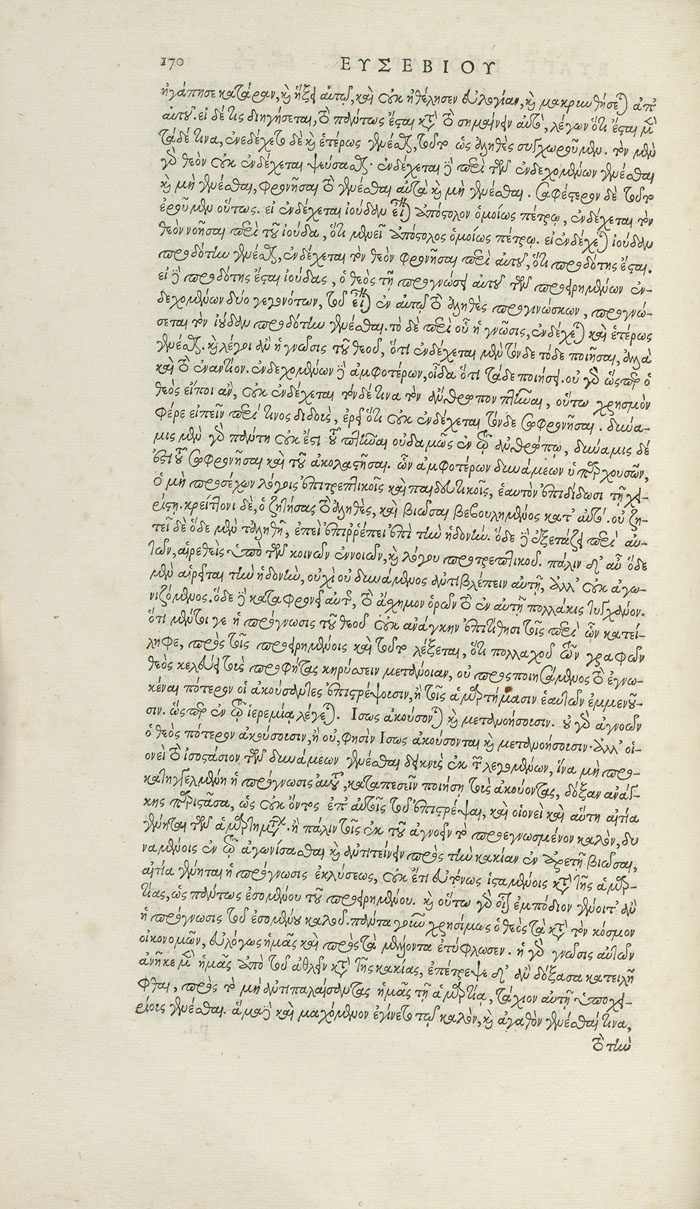 170 ΕΥΣΕΒΙΟΥ
ἠγάπησε κατάραν, καὶ ἥξει αὐτῷ, καὶ οὐκ ἠθέλησεν εὐλογίαν, καὶ μακρυνθήσεται ἀπ'
αὐτοῦ. εἰ δέ τις διηγήσεται, τὸ πάντως ἔσται κατὰ τὸ σημαῖνον αὐτό, λέγων ὅτι ἔσται μὲν
τάδε τινα, ἐνεδέχετο δὲ καὶ ἑτέρως γενέσθαι, τοῦτο ὡς ἀληθὲς συγχωροῦμεν. τὸν μὲν
γὰρ θεὸν οὐκ ἐνδέχεται ψεύσασθαι· ἐνδέχεται δὲ περὶ τῶν ἐνδεχομένων γενέσθαι
καὶ μὴ γενέσθαι, φρονῆσαι τὸ γενέσθαι αὐτὰ καὶ μὴ γενέσθαι. σαφέστερον δὲ τοῦτο
ἐροῦμεν οὕτως. εἰ ἐνδέχεται ἰούδαν εἶναι ἀπόστολον ὁμοίως πέτρῳ, ἐνδέχεται τὸν
θεὸν νοῆσαι περὶ τοῦ ἰούδα, ὅτι μενεῖ ἀπόστολος ὁμοίως πέτρῳ. εἰ ἐνδέχεται ἰούδαν
προδότην γενέσθαι, ἐνδέχεται τὸν θεὸν φρονῆσαι περὶ αὐτοῦ, ὅτι προδότης ἔσται.
εἰ δὲ προδότης ἔσται ἰούδας, ὁ θεὸς τῇ προγνώσει αὐτοῦ τῶν προειρημένων ἐν-
δεχομένων δύο γεγονότων, τοῦ εἶναι ἐν αὐτῷ τὸ ἀληθὲς προγινώσκων, προγνώ-
σεται τὸν ἰούδαν προδότην γενέσθαι. τὸ δὲ περὶ οὗ ἡ γνῶσις, ἐνδέχεται καὶ ἑτέρως
γενέσθαι. καὶ λέγοι ἂν ἡ γνῶσις τοῦ θεοῦ, ὅτι ἐνδέχεται μὲν τόνδε τόδε ποιῆσαι, ἀλλὰ
καὶ τὸ ἐναντίον. ἐνδεχομένων δὲ ἀμφοτέρων, οἶδα ὅτι τάδε ποιήσει. οὐ γὰρ ὥσπερ ὁ
θεὸς εἴποι ἂν, οὐκ ἐνδέχεται τόνδε τινα τὸν ἄνθρωπον πτῆναι, οὕτω χρησμὸν
φέρε εἰπεῖν περί τινος διδοὺς, ἐρεῖ ὅτι οὐκ ἐνδέχεται τόνδε σωφρονῆσαι. δύνα-
μις μὲν γὰρ πάντη οὐκ ἔστι τοῦ πτῆναι οὐδαμῶς ἐν τῷ ἀνθρώπῳ, δύναμις δέ
ἐστι τοῦ σωφρονῆσαι καὶ τοῦ ἀκολαστῆσαι. ὧν ἀμφοτέρων δυνάμεων ὑπαρχουσῶν,
ὁ μὴ προσέχων λόγοις ἐπιτρεπτικοῖς καὶ παιδευτικοῖς, ἑαυτὸν ἐπιδίδωσι τῇ χεί-
ρονι. κρείττονι δὲ, ὁ ζητήσας τὸ ἀληθὲς, καὶ βιῶσαι βεβουλημένος κατ' αὐτό. οὐ ζη-
τεῖ δὲ ὅδε μὲν τἀληθῆ, ἐπεὶ ἐπιρρέπει ἐπὶ τὴν ἡδονήν. ὅδε δὲ ἐξετάζει περὶ αὐ-
τῶν, αἱρεθεὶς ὑπὸ τῶν κοινῶν ἐννοιῶν, καὶ λόγου προτρεπτικοῦ. πάλιν δ' αὖ ὅδε
μὲν αἱρεῖται τὴν ἡδονὴν, οὐχὶ οὐ δυνάμενος ἀντιβλέπειν αὐτῇ, ἀλλ' οὐκ ἀγω-
νιζόμενος. ὅδε δὲ καταφρονεῖ αὐτῆς, τὸ ἄσχημον ὁρῶν τὸ ἐν αὐτῇ πολλάκις τυγχάνον.
ὅτι μέντοι γε ἡ πρόγνωσις τοῦ θεοῦ οὐκ ἀνάγκην ἐπιτίθησι τοῖς περὶ ὧν κατεί-
ληφε, πρὸς τοῖς προειρημένοις καὶ τοῦτο λέξεται, ὅτι πολλαχοῦ τῶν γραφῶν
θεὸς κελεύει τοὺς προφήτας κηρύσσειν μετάνοιαν, οὐ προσποιησάμενος τὸ ἐγνω-
κέναι πότερον οἱ ἀκούσαντες ἐπιστρέψουσιν, ἢ τοῖς ἁμαρτήμασιν ἑαυτῶν ἐμμενοῦ-
σιν. ὥσπερ ἐν τῷ ἱερεμίᾳ λέγεται. Ἴσως ἀκούσονται καὶ μετανοήσουσιν. οὐ γὰρ ἀγνοῶν
ὁ θεὸς πότερον ἀκούσουσιν, ἢ οὐ, φησὶν Ἴσως ἀκούσονται καὶ μετανοήσουσιν. ἀλλ' οἱ-
ονεὶ τὸ ἰσοστάσιον τῶν δυνάμεων γενέσθαι δεικνὺς ἐκ τῶν λεγομένων, ἵνα μὴ προ-
κατηγγελμένη ἡ πρόγνωσις αὐτοῦ, καταπεσεῖν ποιήσῃ τοὺς ἀκούοντας, δόξαν ἀνάγ-
κης παριστᾶσα, ὡς οὐκ ὄντος ἐπ' αὐτοῖς τοῦ ἐπιστρέψαι, καὶ οἱονεὶ καὶ αὕτη αἰτία
γένηται τῶν ἁμαρτημάτων. ἢ πάλιν τοῖς ἐκ τοῦ ἀγνοεῖν τὸ προεγνωσμένον καλὸν, δυ
ναμένοις ἐν τῷ ἀγωνίσασθαι καὶ ἀντιτείνειν πρὸς τὴν κακίαν ἐν ἀρετῇ βιῶσαι,
αἰτία γένηται ἡ πρόγνωσις ἐκλύσεως, οὐκ ἔτι εὐτόνως ἱσταμένοις κατὰ τῆς ἁμαρ-
τίας, ὡς πάντως ἐσομένου τοῦ προειρημένου. καὶ οὕτω γὰρ οἷον ἐμπόδιον γένοιτ' ἂν
ἡ πρόγνωσις τοῦ ἐσομένου καλοῦ. πάντα γοῦν χρησίμως ὁ θεὸς τὰ κατὰ τὸν κόσμον
οἰκονομῶν, εὐλόγως ἡμᾶς καὶ πρὸς τὰ μέλλοντα ἐτύφλωσεν. ἡ γὰρ γνῶσις αὐτῶν
ἀνῆκε μὲν ἡμᾶς ἀπὸ τοῦ ἀθλεῖν κατὰ τῆς κακίας, ἐπέτρεψε δ' ἂν δόξασα κατειλῆ
φθαι, πρὸς τὸ μὴ ἀντιπαλαίσαντας ἡμᾶς τῇ ἁμαρτίᾳ, τάχιον αὐτῇ ὑποχει-
ρίους γενέσθαι. ἅμα δὲ καὶ μαχόμενον ἐγίνετο τῷ καλὸν, καὶ ἀγαθὸν γενέσθαι τινα,
τὸ τὴν